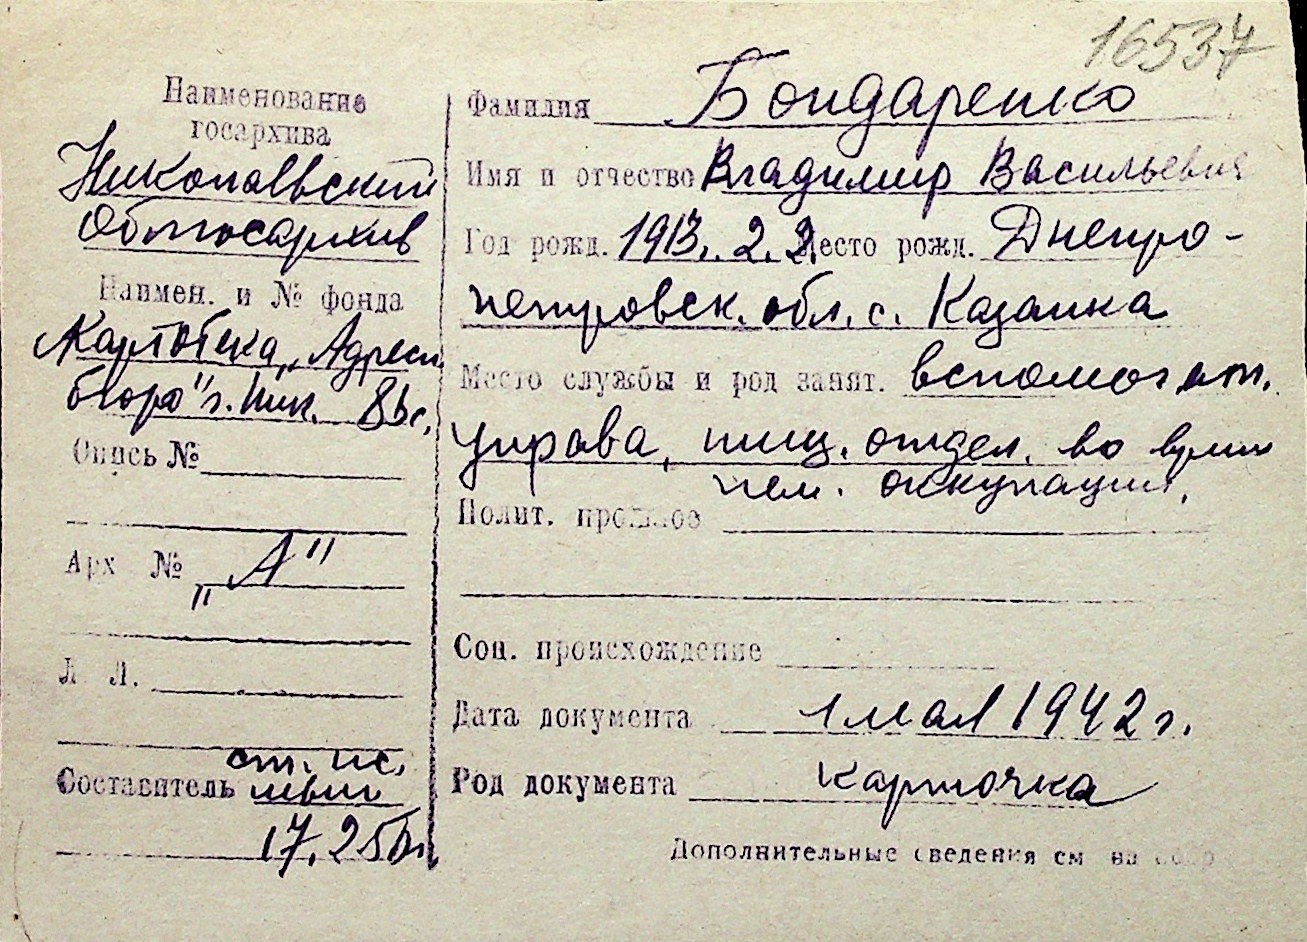 16537
Наименование
госархива
Николаевский
Облгосархив
Наимен. и № фонда
Картотека „Адресн.
бюро" г. Ник.
Опись №
Арх №
„А"
Л Л.
Составитель
17.
Фамилия Бондаренко
Имя и отчество Владимир Васильевич
Год рожд. 1913. 2. 2. Место рожд. Днепро-
петровск. обл. с. Казанка
Место службы и род занят. вспомогат.
управа, пищ. отдел. во время
нем. оккупации.
Полит. прошлое
Соц. происхождение
Дата документа 1 мая 1942 г.
Род документа карточка
Дополнительные сведения см на обор